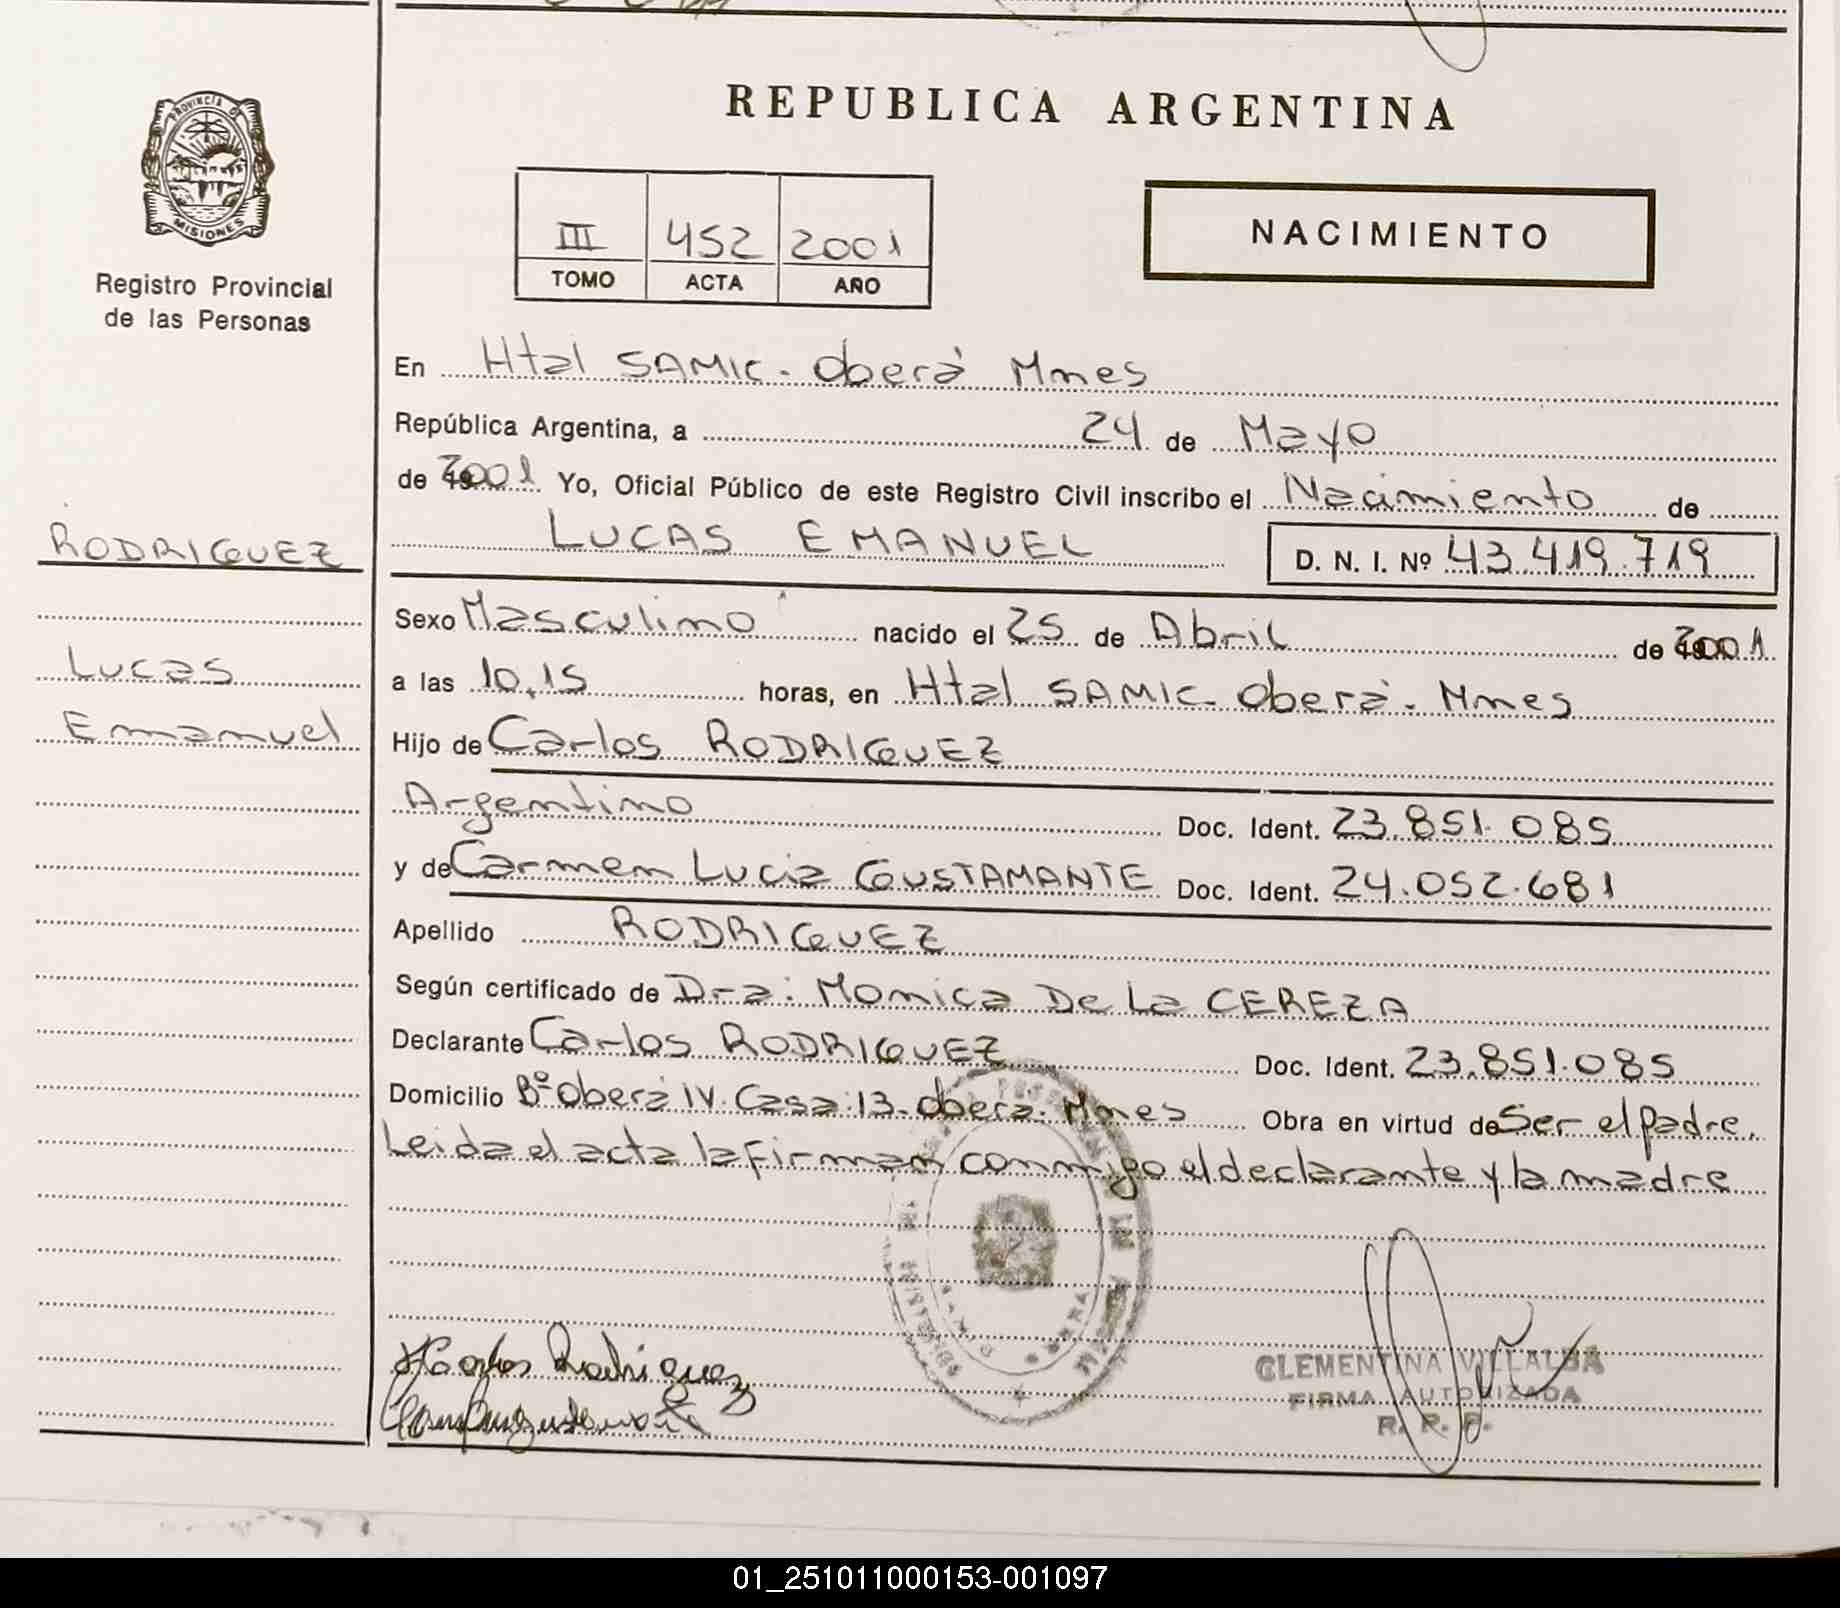 REPUBLICA ARGENTINA
PROVINCIA DE
MISIONES
Registro Provincial
de las Personas
III 452 2001
TOMO ACTA AÑO
NACIMIENTO
En Htal SAMIC. Oberá Mnes
República Argentina, a 24 de Mayo
de 2001 Yo, Oficial Público de este Registro Civil inscribo el Nacimiento de
LUCAS EMANUEL D. N. I. Nº 43.419.719
RODRIGUEZ
Lucas
Emanuel
Sexo Masculino nacido el 25 de Abril de 2001
a las 10,15 horas, en Htal SAMIC. Oberá. Mnes
Hijo de Carlos RODRIGUEZ
Argentino Doc. Ident. 23.851.085
y de Carmen Lucia GUSTAMANTE Doc. Ident. 24.052.681
Apellido RODRIGUEZ
Según certificado de Dra: Monica De La CEREZA
Declarante Carlos RODRIGUEZ Doc. Ident. 23.851.085
Domicilio Bº Oberá IV. Casa:13. Oberá. Mnes Obra en virtud de Ser el padre.
Leida el acta la firman conmigo el declarante y la madre
Carlos Rodriguez
CLEMENTINA VILLALBA
FIRMA AUTORIZADA
R. R. P.
01_251011000153-001097